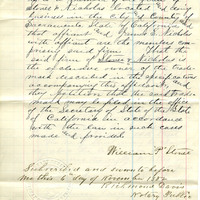 Stone & Nichols located & doing
business in the City & County of
Sacramento State of California
that affiant and Frank D. Nichols
with affiant are the members com-
prising said firm that the
said firm of Stone & Nichols is
the exclusive owner of the trade
mark described in the specification
accompanying this affidavit, and
they petition that the said trade
mark may be filed in the office
of the Secretary of State of the State
of California in accordance
with the law in such cases
made and provided.
William P. Stone
Subscribed and sworn before
me this 6th day of November 1882
Davis
Notary Public